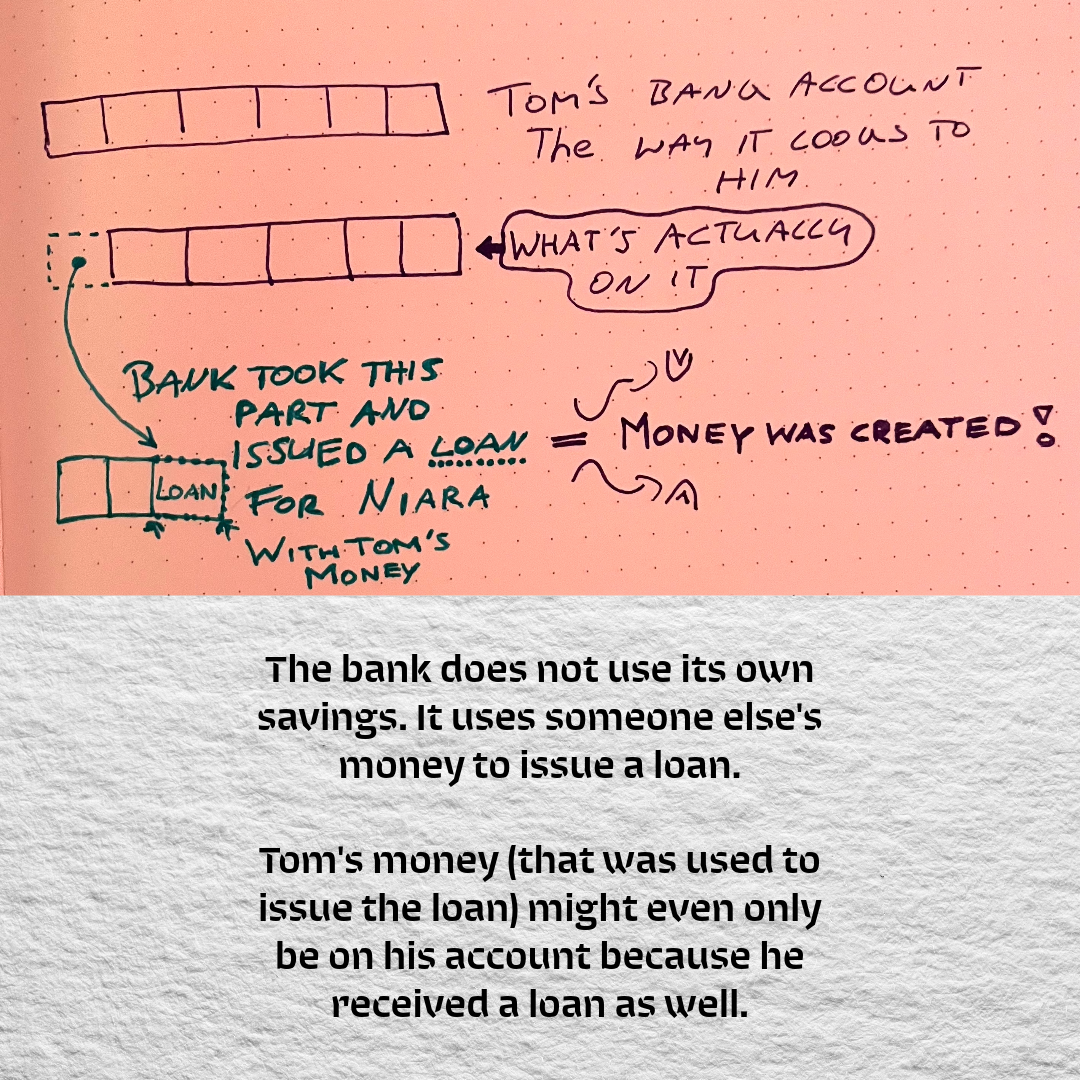 TOM'S BANK ACCOUNT
The WAY IT LOOKS TO
HIM.
WHAT'S ACTUALLY
ON IT
BANK TOOK THIS
PART AND
ISSUED A LOAN
= MONEY WAS CREATED!
LOAN
FOR NIARA
WITH TOM'S
MONEY
The bank does not use its own
savings. It uses someone else's
money to issue a loan.
Tom's money (that was used to
issue the loan) might even only
be on his account because he
received a loan as well.